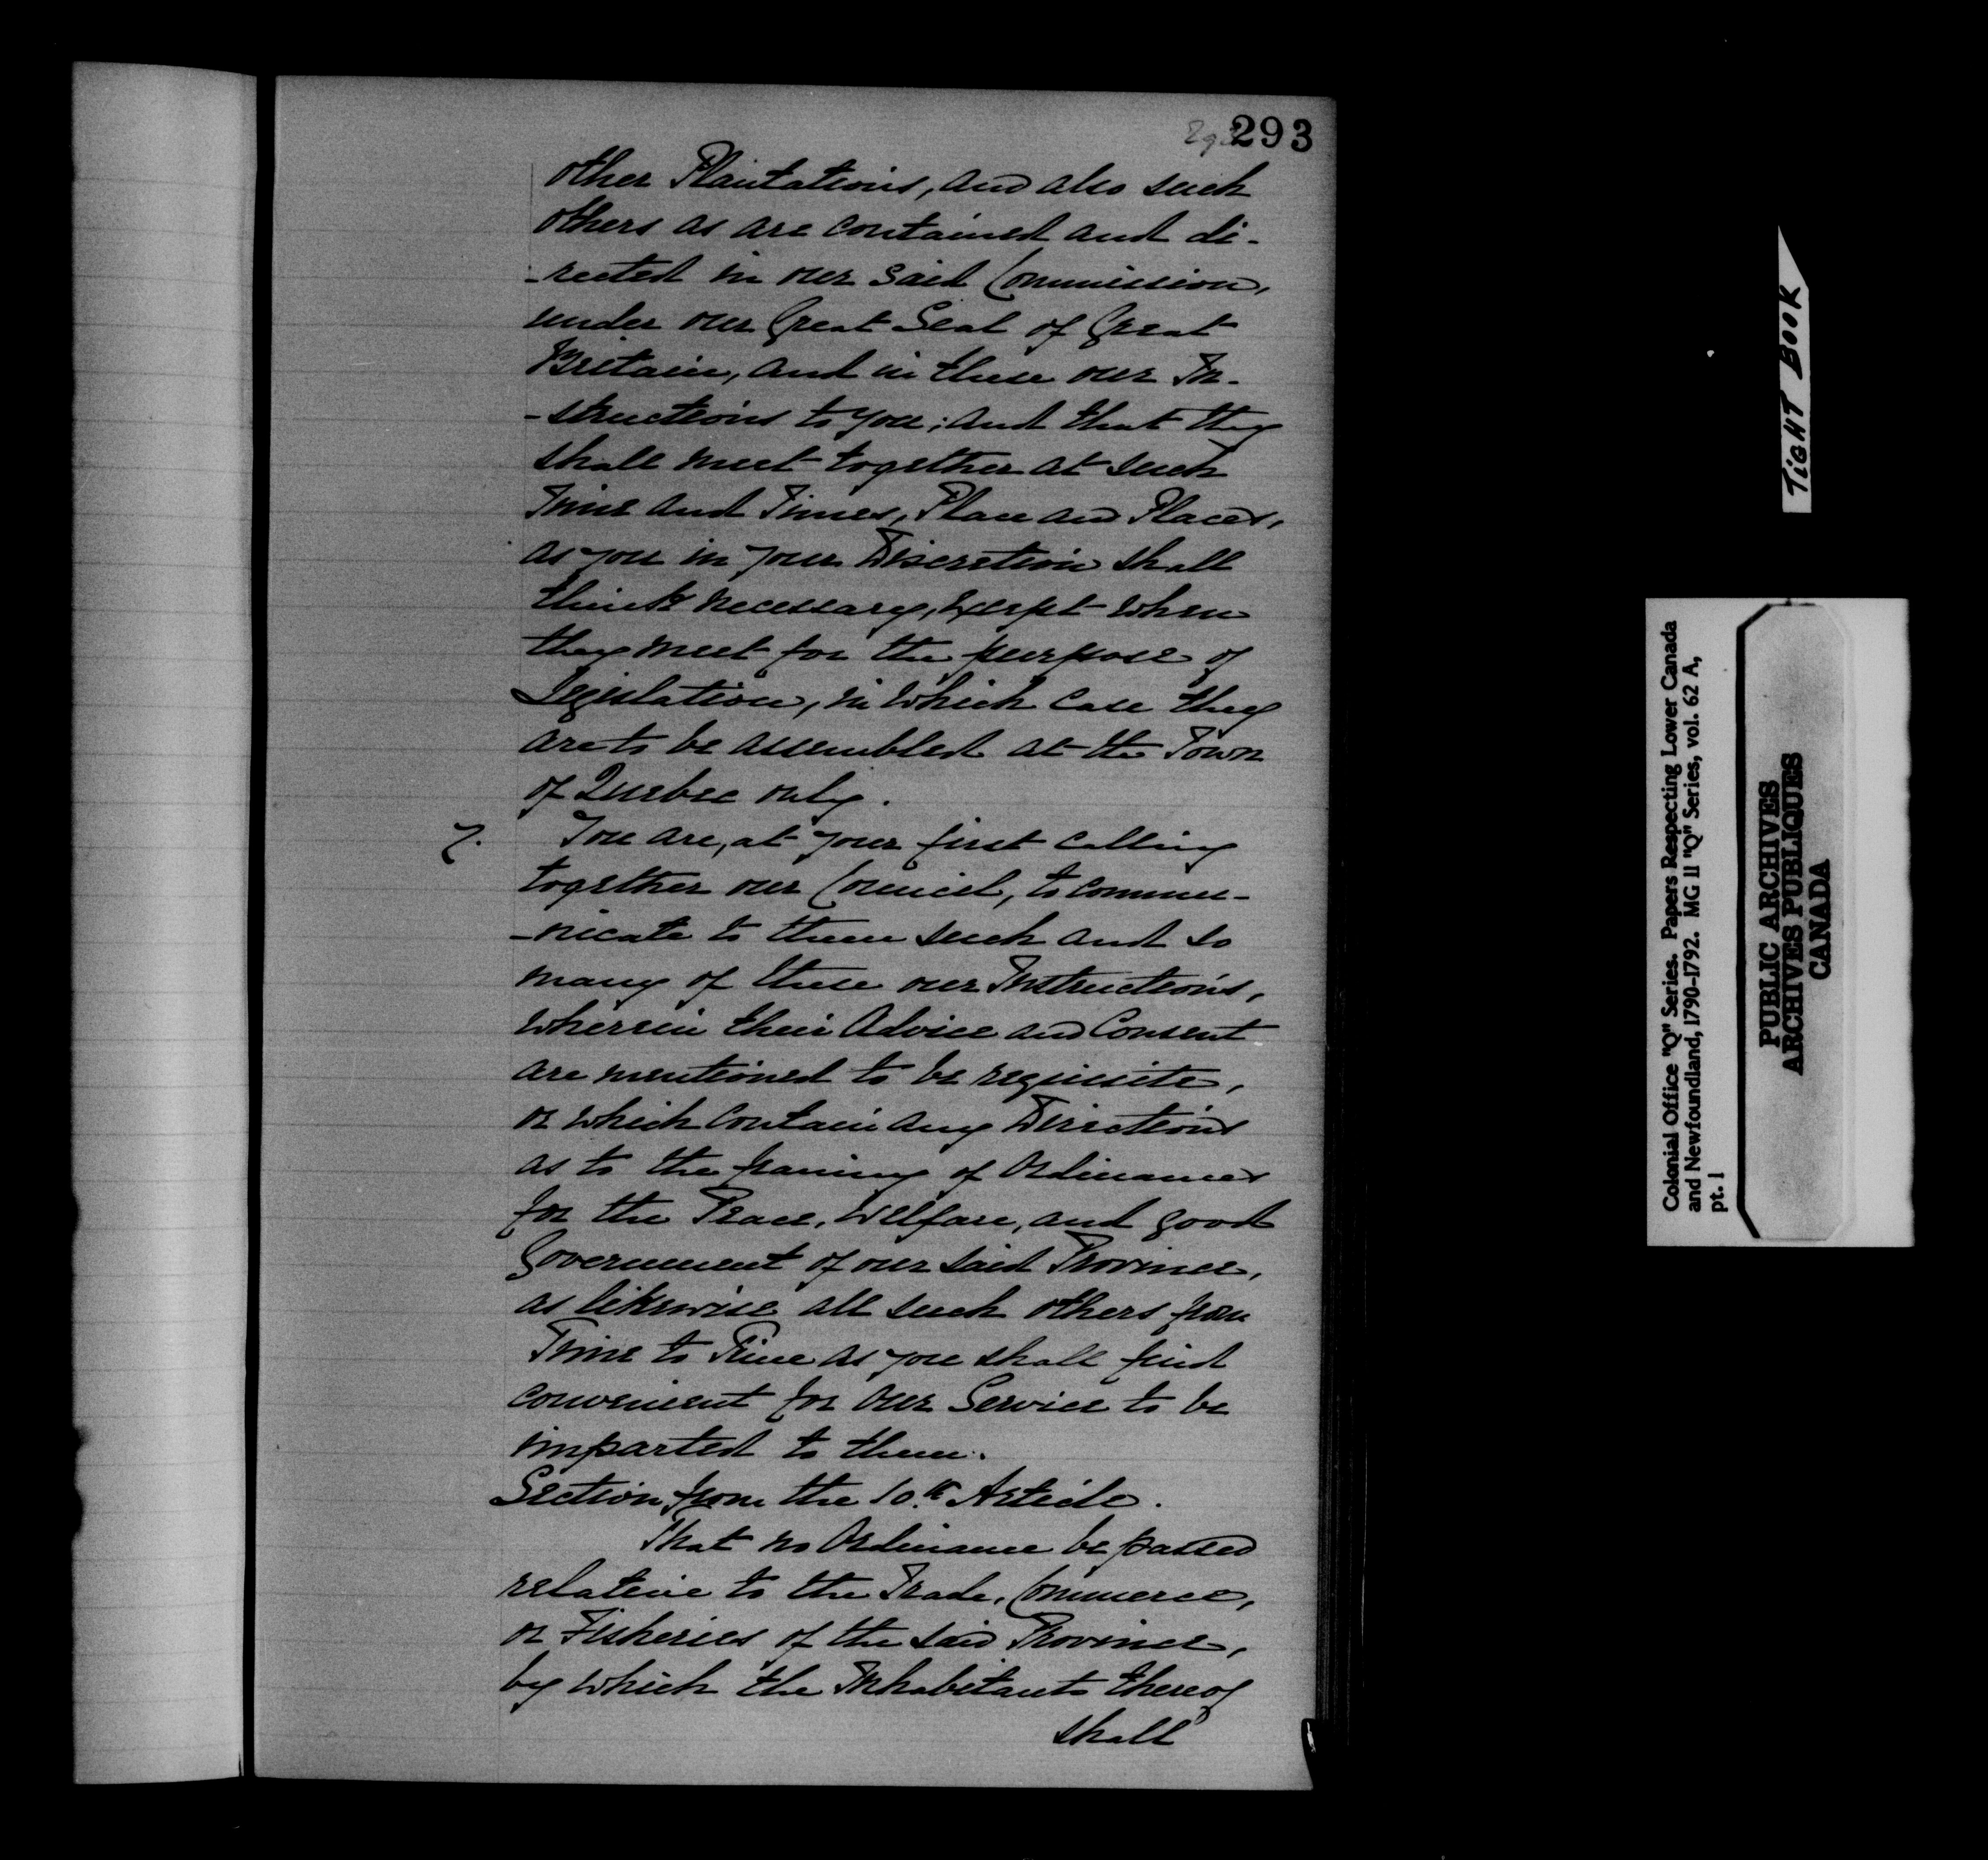 293
other Plantations, and also such
others as are contained and di-
-rected in our said Commission,
under our Great Seal of Great
Britain, and in these our In-
-structions to you; and that they
shall meet together at such
Time and Times, Place and Places,
as you in your Discretion shall
think necessary, Except when
they meet for the purpose of
Legislation, in which Case they
are to be assembled at the Town
of Quebec only.
7. You are, at your first calling
together our Council, to commu-
-nicate to them such and so
many of these our Instructions,
wherein their Advice and Consent
are mentioned to be requisite,
or which contain any Directions
as to the framing of Ordinances
for the Peace, Welfare, and good
Government of our said Province,
as likewise all such others from
Time to Time as you shall find
convenient for our Service to be
imparted to them.
Section from the 10th Article.
That no Ordinance be passed
relative to the Trade, Commerce,
or Fisheries of the said Province,
by which the Inhabitants thereof
shall
TIGHT BOOK
Colonial Office "Q" Series. Papers Respecting Lower Canada
and Newfoundland, 1790-1792. MG 11 "Q" Series, vol. 62 A,
pt. 1
PUBLIC ARCHIVES
ARCHIVES PUBLIQUES
CANADA